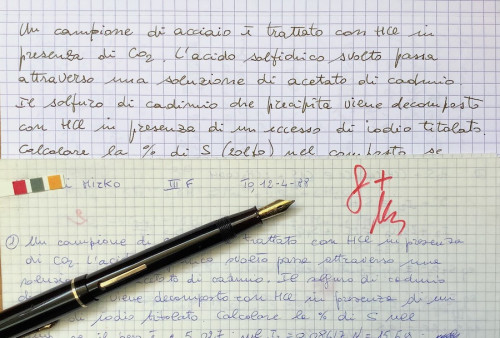 Un campione di acciaio è trattato con HCl in
presenza di CO2. L'acido solfidrico svolto passa
attraverso una soluzione di acetato di cadmio
Il solfuro di cadmio che precipita viene decomposto
con HCl in presenza di un eccesso di iodio titolato.
Calcolare la % di S (zolfo) nel composto se
Mirko III F To, 12-4-88
8+
① Un campione di trattato con HCl in presenza
di CO2 L'acido svolto passa attraverso una
di cadmio. Il solfuro di cadmio
viene decomposto con HCl in presenza di un
di iodio titolato Calcolare la % di S nel